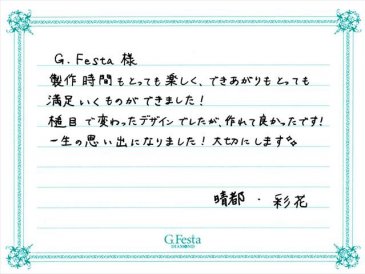 G.Festa 様
製作時間もとっても楽しく、できあがりもとっても
満足いくものができました!
槌目で変わったデザインでしたが、作れて良かったです!
一生の思い出になりました!大切にします
晴都・彩花
G.Festa
DIAMOND